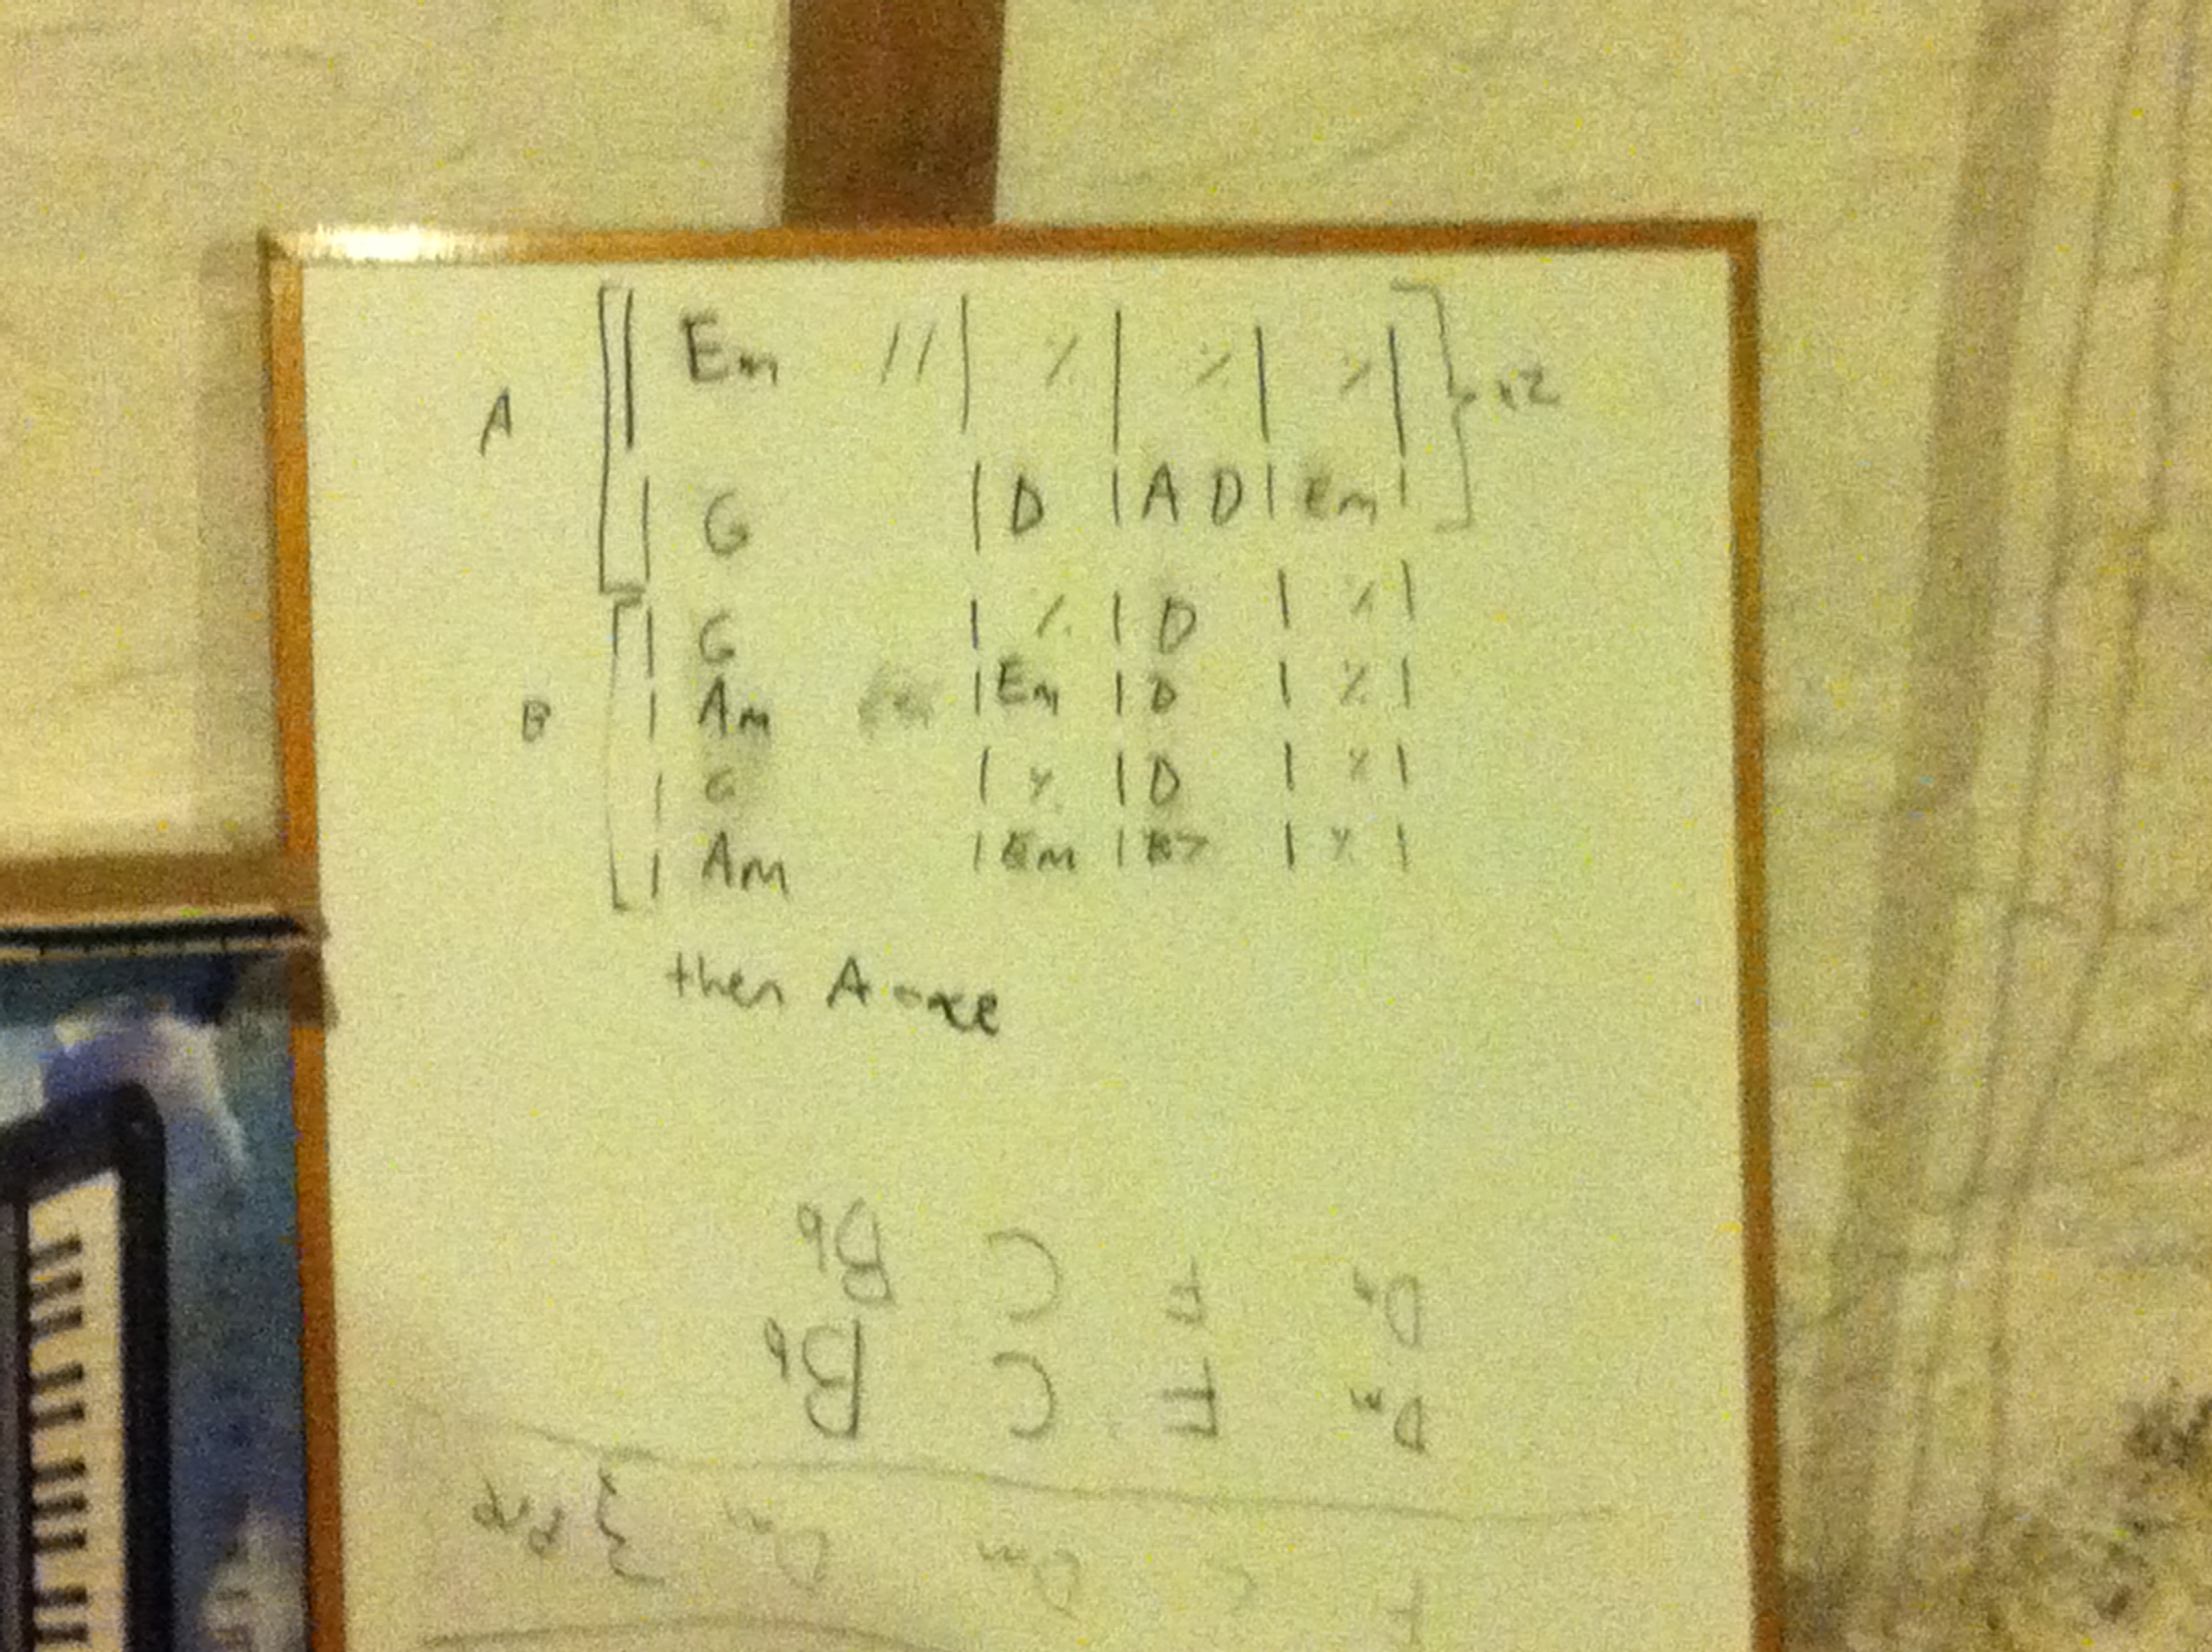 A
Em // | ٪ | ٪ | ٪ | x2
| G | D | A D | Em |
B
| G | ٪ | D | ٪ |
| Am | Em | D | ٪ |
| G | ٪ | D | ٪ |
| Am | Em | B7 | ٪ |
then A once
Dm F C Bb
Dm F C Bb
F C Dm Dm }